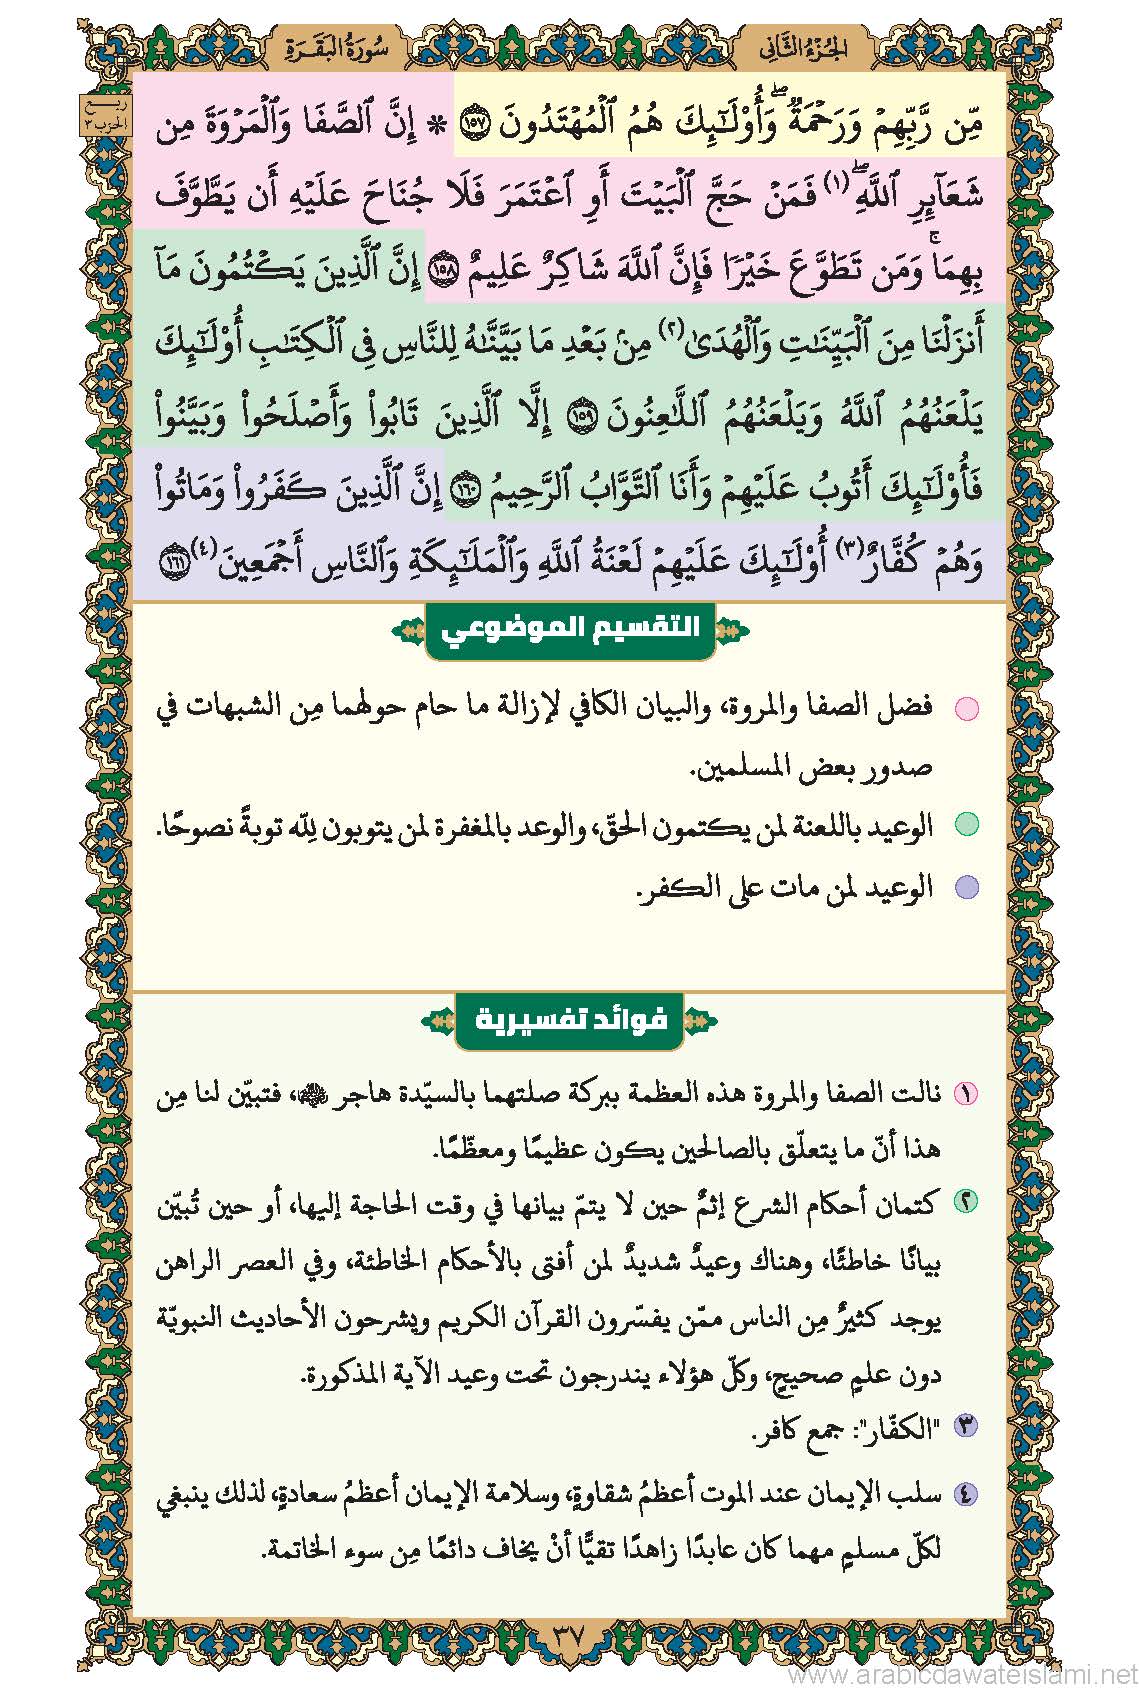 الجُزْءُ الثَّانِي
سُورَةُ البَقَرَةِ
ربع
الحزب ٣
مِّن رَّبِّهِمۡ وَرَحۡمَةٞۖ وَأُوْلَٰٓئِكَ هُمُ ٱلۡمُهۡتَدُونَ ١٥٧ * إِنَّ ٱلصَّفَا وَٱلۡمَرۡوَةَ مِن
شَعَآئِرِ ٱللَّهِۖ (١) فَمَنۡ حَجَّ ٱلۡبَيۡتَ أَوِ ٱعۡتَمَرَ فَلَا جُنَاحَ عَلَيۡهِ أَن يَطَّوَّفَ
بِهِمَاۚ وَمَن تَطَوَّعَ خَيۡرٗا فَإِنَّ ٱللَّهَ شَاكِرٌ عَلِيمٌ ١٥٨ إِنَّ ٱلَّذِينَ يَكۡتُمُونَ مَآ
أَنزَلۡنَا مِنَ ٱلۡبَيِّنَٰتِ وَٱلۡهُدَىٰ (٢) مِنۢ بَعۡدِ مَا بَيَّنَّٰهُ لِلنَّاسِ فِي ٱلۡكِتَٰبِ أُوْلَٰٓئِكَ
يَلۡعَنُهُمُ ٱللَّهُ وَيَلۡعَنُهُمُ ٱللَّٰعِنُونَ ١٥٩ إِلَّا ٱلَّذِينَ تَابُواْ وَأَصۡلَحُواْ وَبَيَّنُواْ
فَأُوْلَٰٓئِكَ أَتُوبُ عَلَيۡهِمۡ وَأَنَا ٱلتَّوَّابُ ٱلرَّحِيمُ ١٦٠ إِنَّ ٱلَّذِينَ كَفَرُواْ وَمَاتُواْ
وَهُمۡ كُفَّارٌ (٣) أُوْلَٰٓئِكَ عَلَيۡهِمۡ لَعۡنَةُ ٱللَّهِ وَٱلۡمَلَٰٓئِكَةِ وَٱلنَّاسِ أَجۡمَعِينَ (٤) ١٦١
التقسيم الموضوعي
فضل الصفا والمروة، والبيان الكافي لإزالة ما حام حولهما مِن الشبهات في
صدور بعض المسلمين.
الوعيد باللعنة لمن يكتمون الحقّ، والوعد بالمغفرة لمن يتوبون لِلّٰه توبةً نصوحًا.
الوعيد لمن مات على الكفر.
فوائد تفسيرية
١ نالت الصفا والمروة هذه العظمة ببركة صلتهما بالسيّدة هاجر، فتبيّن لنا مِن
هذا أنّ ما يتعلّق بالصالحين يكون عظيمًا ومعظّمًا.
٢ كتمان أحكام الشرع إثمٌ حين لا يتمّ بيانها في وقت الحاجة إليها، أو حين تُبيّن
بيانًا خاطئًا، وهناك وعيدٌ شديدٌ لمن أفتى بالأحكام الخاطئة، وفي العصر الراهن
يوجد كثيرٌ مِن الناس ممّن يفسّرون القرآن الكريم ويشرحون الأحاديث النبويّة
دون علمٍ صحيحٍ، وكلّ هؤلاء يندرجون تحت وعيد الآية المذكورة.
٣ "الكفّار": جمع كافر.
٤ سلب الإيمان عند الموت أعظمُ شقاوةٍ، وسلامة الإيمان أعظمُ سعادةٍ، لذلك ينبغي
لكلّ مسلمٍ مهما كان عابدًا زاهدًا تقيًّا أنْ يخاف دائمًا مِن سوء الخاتمة.
٣٧
www.arabicdawateislami.net